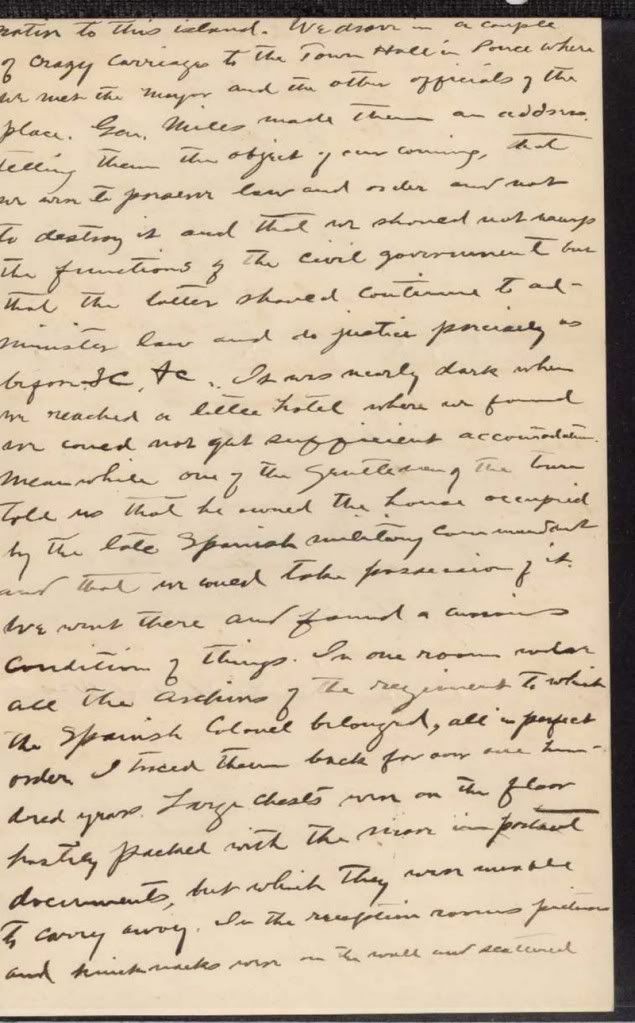 to this island. We drove in a couple
of crazy carriages to the Town Hall in Ponce where
we met the mayor and the other officials of the
place. Gen. Miles made them an address,
telling them the object of our coming, that
we were to preserve law and order and not
to destroy it and that we should not usurp
the functions of the civil government but
that the latter should continue to ad-
minister law and do justice precisely as
before &c, &c. It was nearly dark when
we reached a little hotel where we found
we could not get sufficient accomodation.
Meanwhile one of the gentlemen of the town
told us that he owned the house occupied
by the late Spanish military commandant
and that we could take possession of it.
We went there and found a curious
condition of things. In one room were
all the archives of the regiment to which
the Spanish Colonel belonged, all in perfect
order. I traced them back for over one hun-
dred years. Large chests were on the floor
hastily packed with the more important
documents, but which they were unable
to carry away. In the reception rooms pictures
and knicknacks were on the wall and scattered